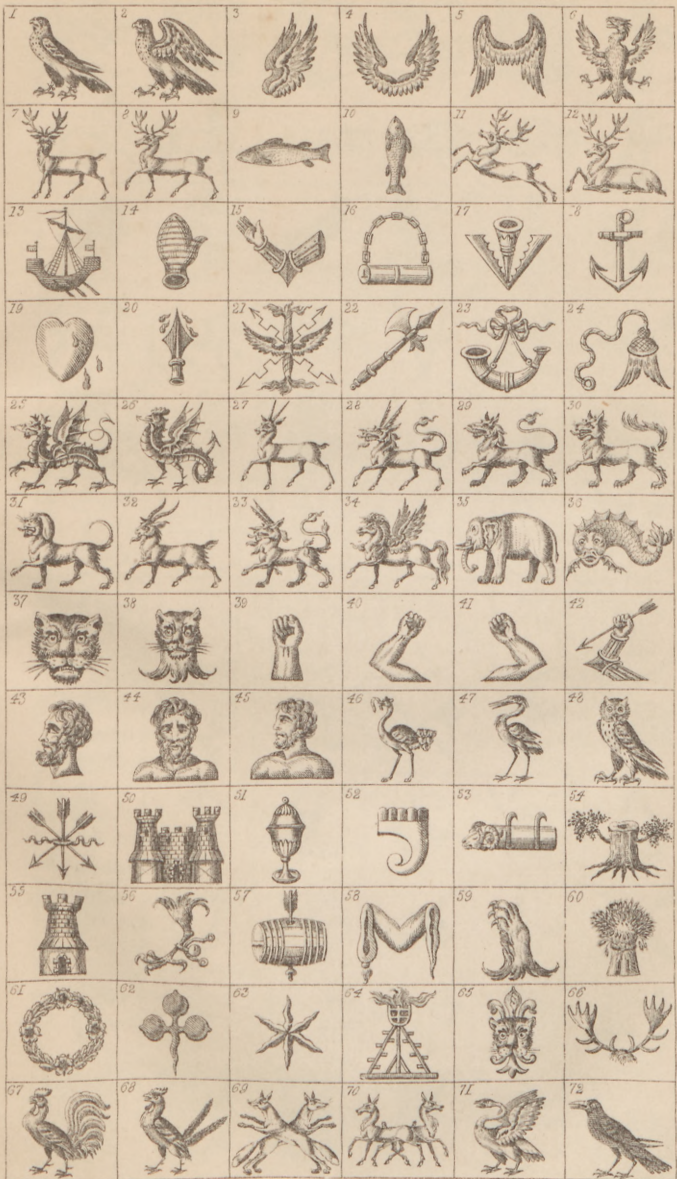 1 2 3 4 5 6
7 8 9 10 11 12
13 14 15 16 17 18
19 20 21 22 23 24
25 26 27 28 29 30
31 32 33 34 35 36
37 38 39 40 41 42
43 44 45 46 47 48
49 50 51 52 53 54
55 56 57 58 59 60
61 62 63 64 65 66
67 68 69 70 71 72